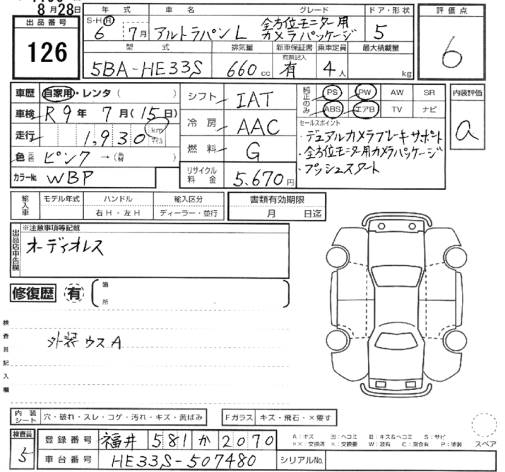 8月28日
出品番号
126
年式 車名 グレード ドア・形状
S・H・R 6年 7月 アルトラパン L 全方位モニター用カメラパッケージ 5
型式 排気量 新車保証書 乗車定員 最大積載量
5BA-HE33S 660cc 有 4人 kg
評価点
6
車歴 自家用・レンタ
車検 R9年 7月(15日)
走行 1,930 km
色 ピンク
カラーNo. WBP
シフト IAT
冷房 AAC
燃料 G
リサイクル料金 5,670円
純正のみ
PS PW AW SR
ABS エアB TV ナビ
セールスポイント
・デュアルカメラブレーキサポート
・全方位モニター用カメラパッケージ
・プッシュスタート
内装評価
a
輸入車 モデル年式 ハンドル 輸入区分
右H・左H ディーラー・並行
書類有効期限
月 日迄
出品店申告欄
※注意事項等記載
オーディオレス
修復歴 有 箇所
検査員記入欄
外装 ウスA
内装シート 穴・破れ・スレ・コゲ・汚れ・キズ・黄ばみ
Fガラス キズ・飛石・×要す
検査員
5
登録番号 福井 581 か 2070
車台番号 HE33S-507480 シリアルNo.
スペア